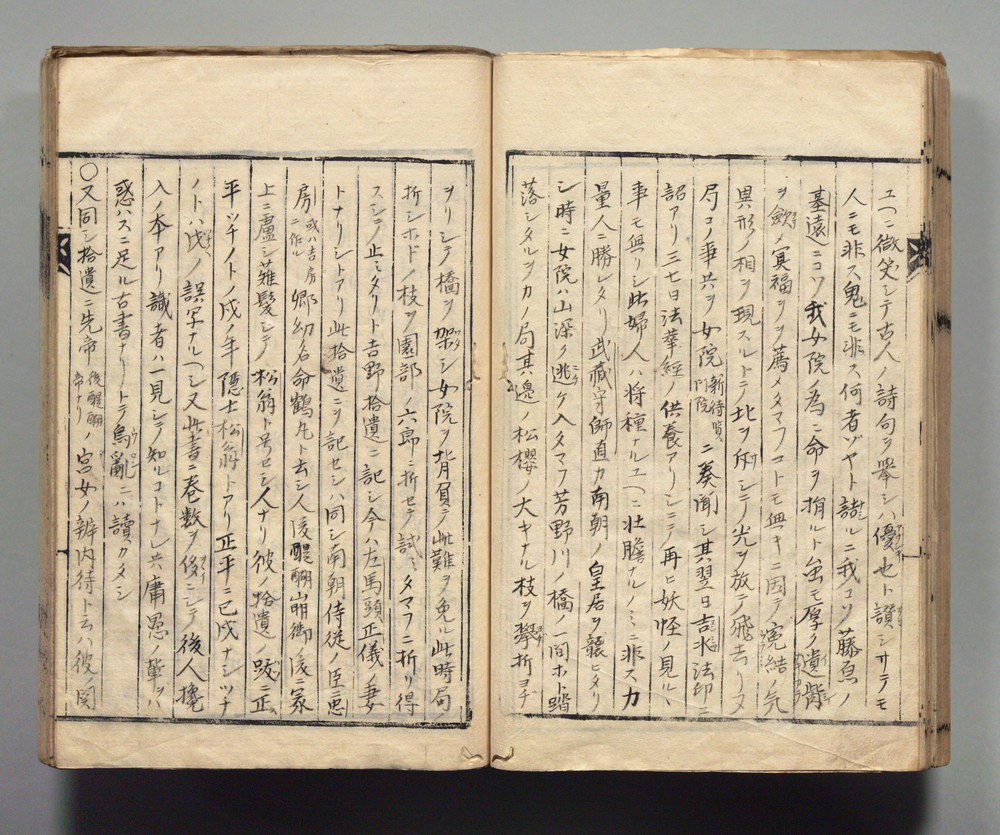 ユヘニ微笑シテ古人ノ詩句ヲ挙シハ優也ト讃シサテモ
人ニモ非ス鬼ニモ非ス何者ゾヤト ルニ我コソ藤原ノ
基遠ニコソ我女院ノ為ニ命ヲ捐ルト虽モ厚ク遺
ヲ歛メ冥福ヲヲ薦メタマフコトモ無キニ因テ寃結ノ気
異形ノ相ヲ現スルトテ北ヲ シテ光ヲ放テ飛去リヌ
局コノ事共ヲ女院新待賢門院ニ奏聞シ其翌日吉水法印ニ
詔アリ三七日法華經ノ供養アリシニテ再ヒ妖怪ノ見ル
事モ無リシ此婦人ハ将種ナルユヘニ壮膽ナルノミニ非スカ
量人ニ勝レタリ武蔵守師直カ南朝ノ皇居ヲ襲ヒタリ
シ時ニ女院ハ山深ク逃ケ入タマフ芳野川ノ橋ノ一間ホト踏
落シタルヲカノ局其邊ノ松櫻ノ大キナル枝ヲ攀折ヲ
ヲリシテ橋ヲ架シ女院ヲ背負テ此難ヲ免ル此時局ノ
折シホドノ枝ヲ園部ノ六郎ニ折セテ試ミタマフニ折リ得
スシテノ止ミタリト吉野拾遺ニ記シ今ハ左馬頭正儀ノ妻
トナリシトアリ此拾遺ニヲ記セシハ同シ南朝侍従ノ臣忠
房或ハ吉房ニ作ル郷幼名命鶴丸ト云シ人後醍醐崩御ノ後ニ冢
上ニ廬シ薙髪シテ松翁ト号セシ人ナリ彼ノ拾遺ノ跋ニ正
平ツチノトノ戌ノ年隠士松翁トアリ正平ニ己戌ナシツチ
ノトハ戊ノ誤写ナルヘシ又此書ニ巻数ヲ俢ニシテ後人攙
入ノ本アリ識者ハ一見シテ知ルコトナレ共庸愚ノ輩ヲハ
惑ハスニ足ル古書ナリトテ烏亂ニハ讀カタシ
〇又同シ拾遺ニ先帝後醍醐帝ナリノ宮女ノ辨内待ト云ハ彼ノ関